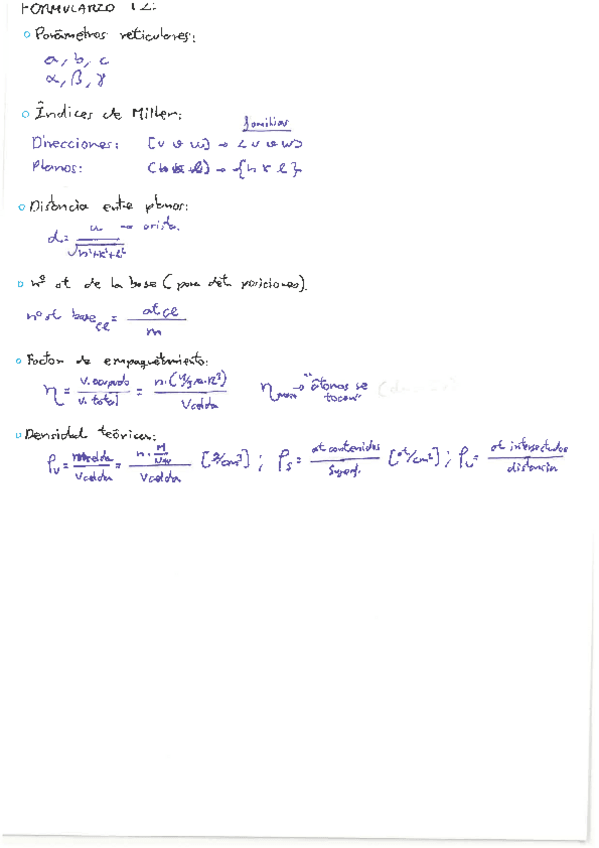 FORMULARIO T2:
Parámetros reticulares:
a, b, c
α, β, γ
Índices de Miller:
familias
Direcciones: [u v w] → <u v w>
Planos: (h k l) → {h k l}
Distancia entre planos:
d = a → arista. / √h²+k²+l²
nº at de la base (para det posiciones).
nº at base = at ce / m
Factor de empaquetamiento:
η = V. ocupado / V. total = n·(4/3·π·R³) / Vcelda η → "átomos se tocan"
Densidad teórica:
ρv = mcelda / Vcelda = n · M/Nav / Vcelda [g/cm³] ; ρs = at contenidos / Superf. [at/cm²] ; ρL = at intersectados / distancia